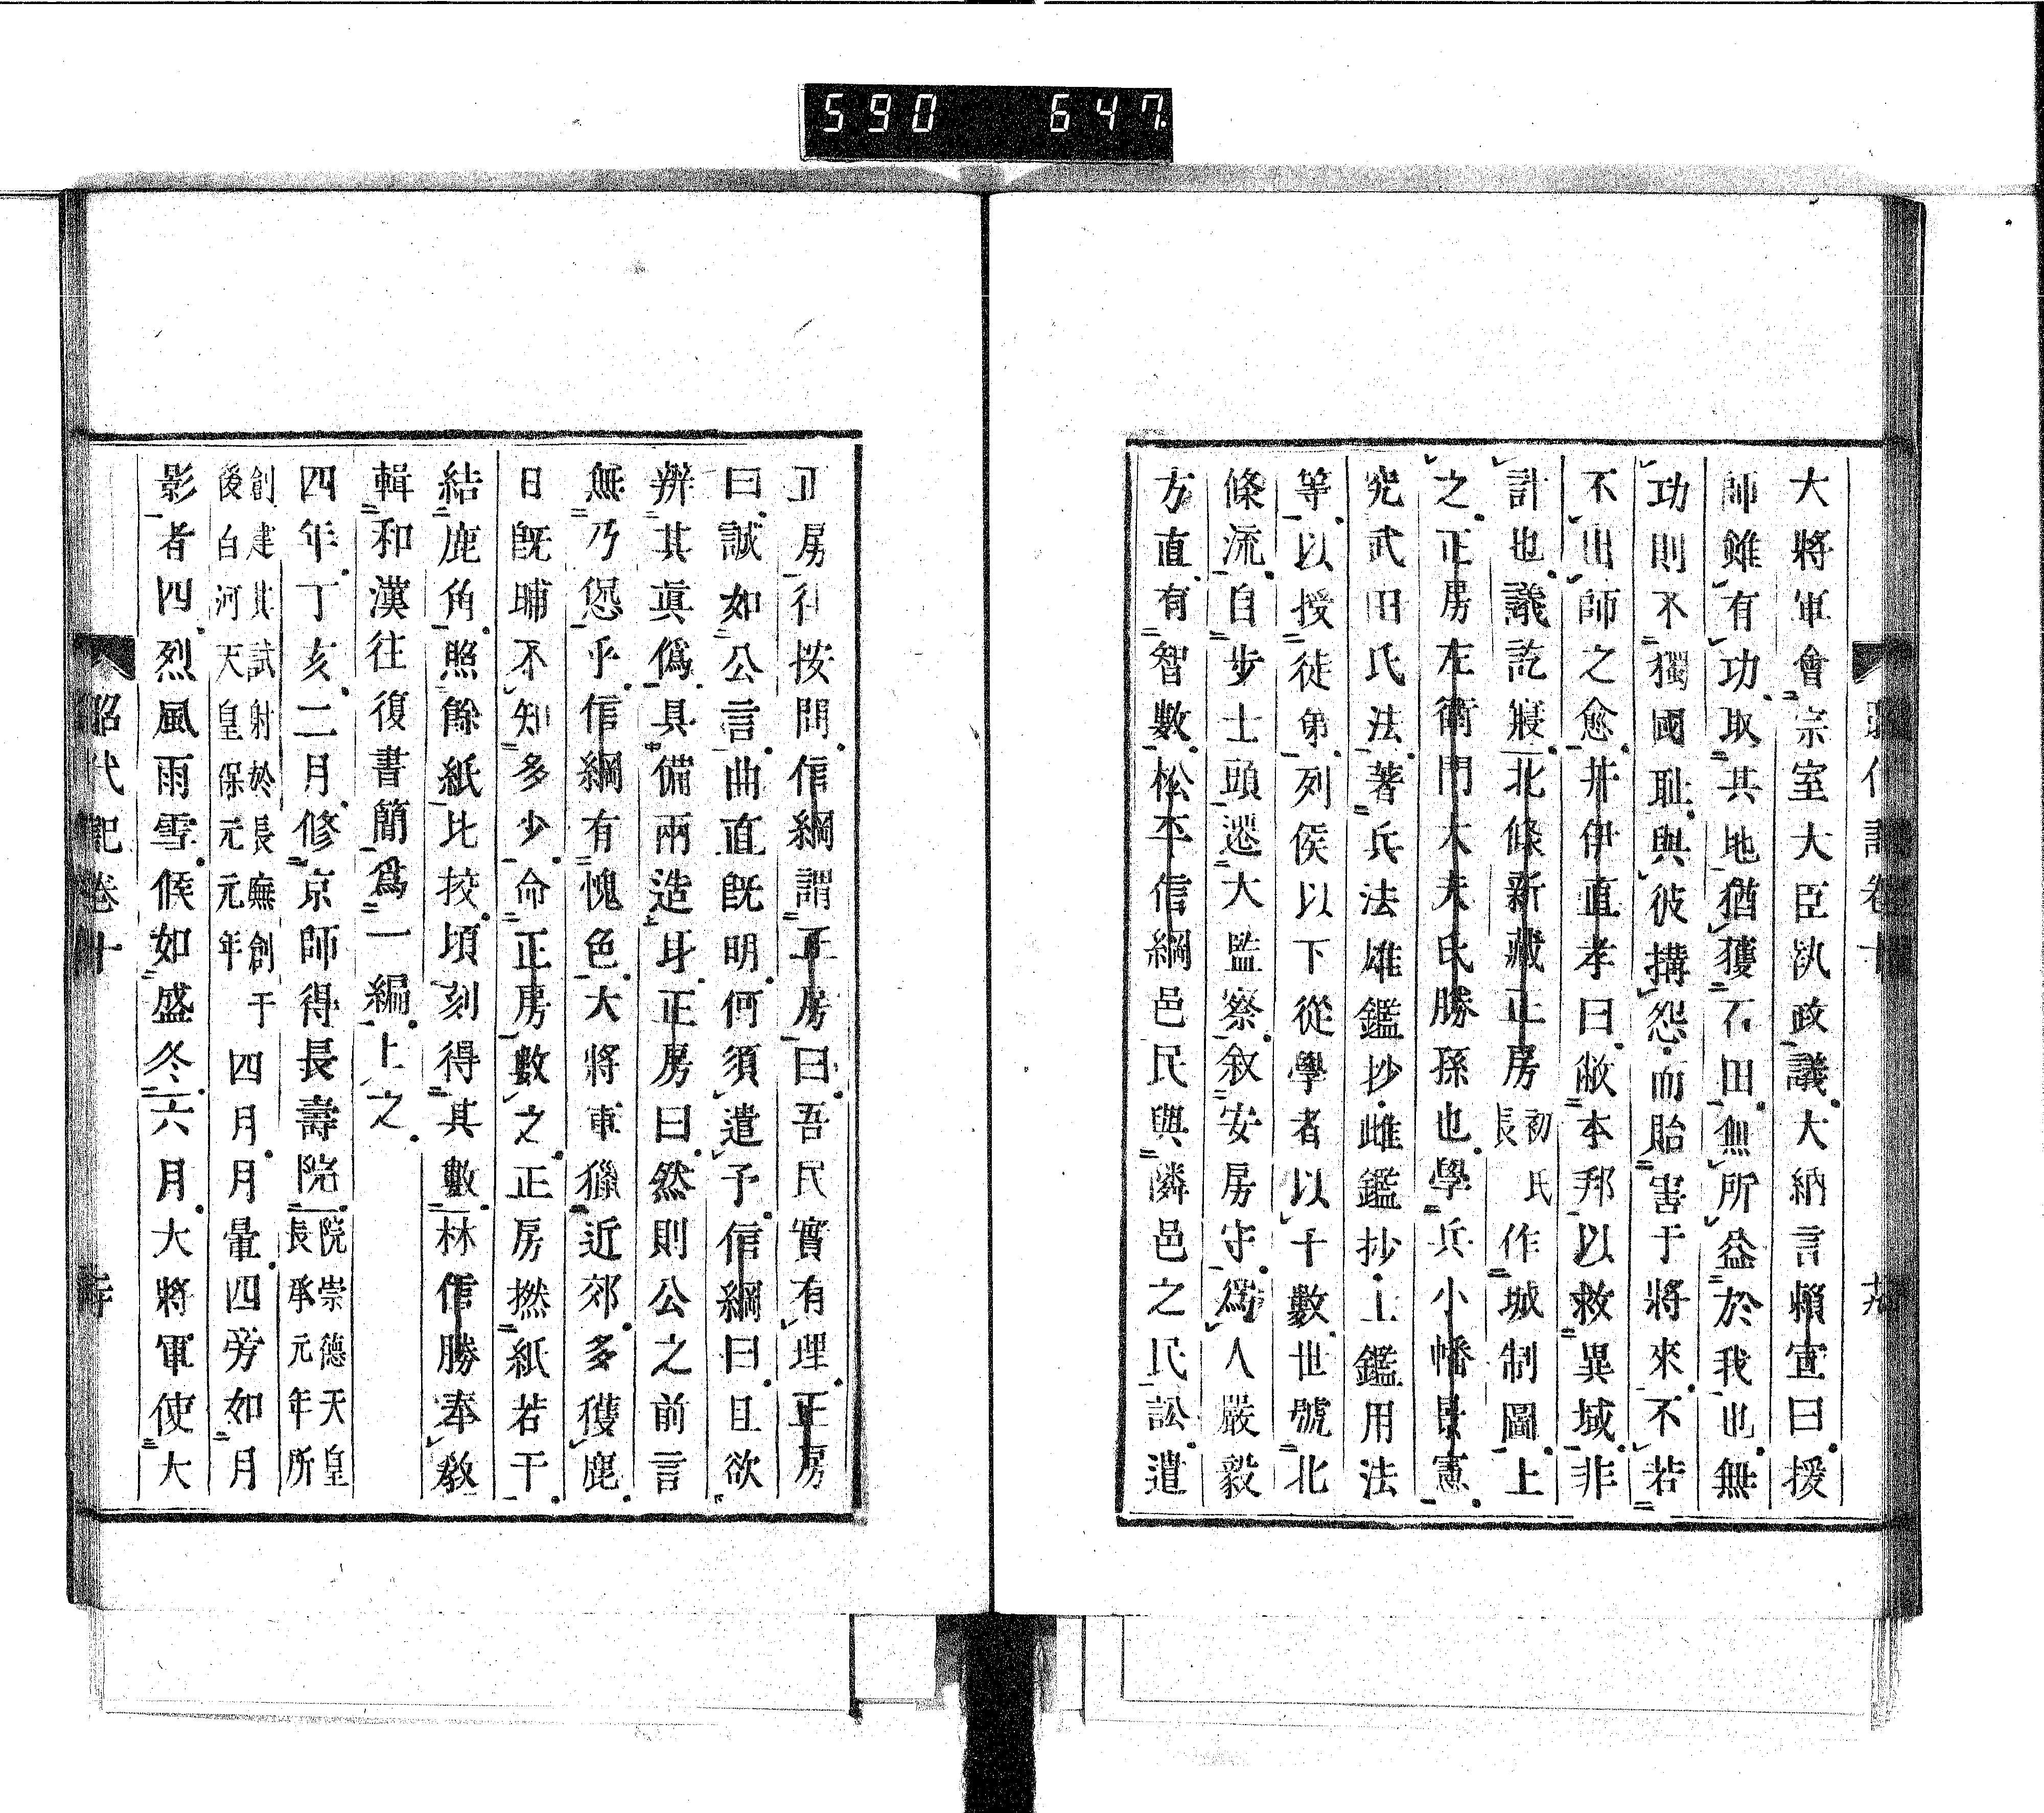 590 647
大將軍會宗室大臣執政議大納言賴宣曰援
師雖有功取其地猶獲石田無所益於我也無
功則不獨國耻與彼搆怨而貽害于將來不若
不出師之愈井伊直孝曰敝本邦以救異域非
計也議訖寢北條新藏正房初氏長作城制圖上
之正房左衛門大夫氏勝孫也學兵小幡景憲
究武田氏法著兵法雄鑑抄雌鑑抄士鑑用法
等以授徒弟列侯以下從學者以千數世號北
條流自步士頭遷大監察敘安房守爲人嚴毅
方直有智數松平信綱邑民與隣邑之民訟遣
正房往按問信綱謂正房曰吾民實有理正房
曰誠如公言曲直既明何須遣予信綱曰且欲
辨其眞僞具備兩造耳正房曰然則公之前言
無乃慫乎信綱有愧色大將軍獵近郊多獲鹿
日既晡不知多少命正房數之正房撚紙若干
結鹿角照餘紙比挍頃刻得其數林信勝奉敎
輯和漢往復書簡爲一編上之
四年丁亥二月修京師得長壽院院崇德天皇長承元年所
創建其試射於長廡創于後白河天皇保元元年四月月暈四旁如月
影者四烈風雨雪候如盛冬六月大將軍使大
昭代記卷十